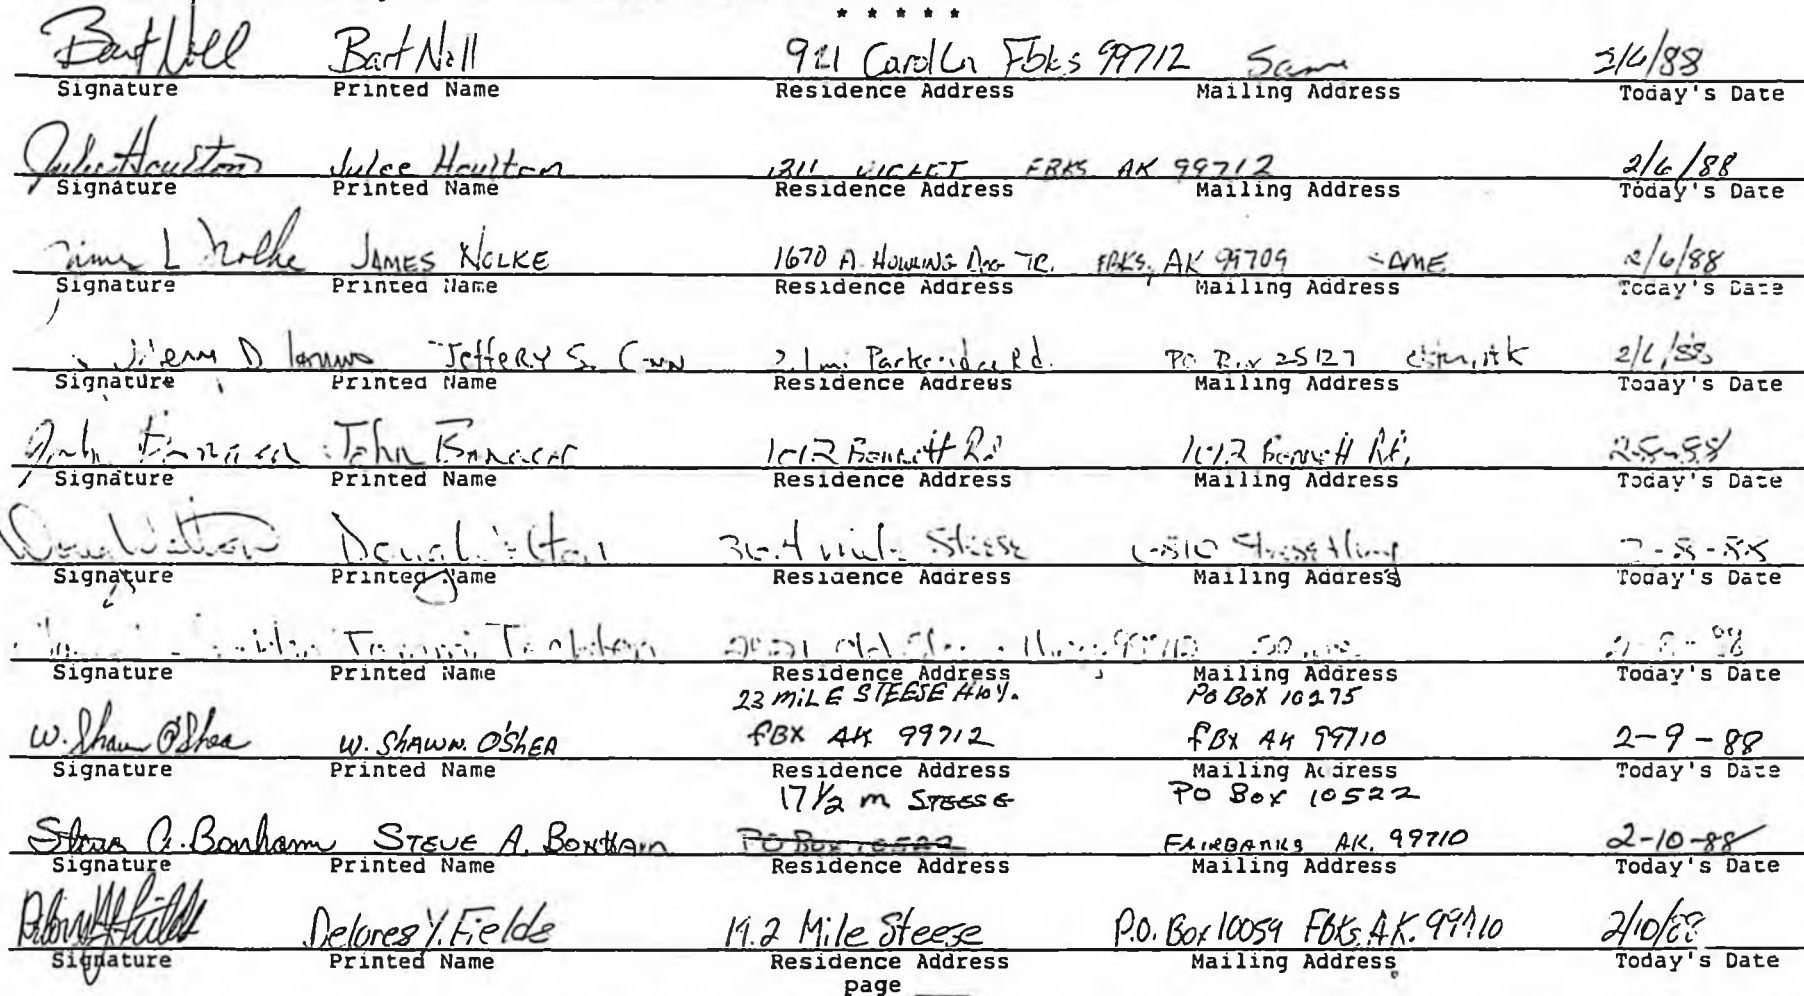 * * * * *
Bart Noll Bart Noll 921 Carol Ln Fbks 99712 Same 2/6/88
Signature Printed Name Residence Address Mailing Address Today's Date
Julee Houlton Julee Houlton 1211 VIOLET FBKS AK 99712 2/6/88
Signature Printed Name Residence Address Mailing Address Today's Date
James L Nolke JAMES NOLKE 1670 A HOWLING Dog TR. FBKS, AK 99709 SAME 2/6/88
Signature Printed Name Residence Address Mailing Address Today's Date
JeffeRY S. 2.1 mi Parkridge Rd. PO Box 25127 Ester, AK 2/6/88
Signature Printed Name Residence Address Mailing Address Today's Date
John John Bennett Rd Bennett Rd. 2-8-88
Signature Printed Name Residence Address Mailing Address Today's Date
Doug Doug mile Steese Steese Hwy 2-8-88
Signature Printed Name Residence Address Mailing Address Today's Date
Tammi Old 99712 Same
Signature Printed Name Residence Address Mailing Address Today's Date
23 MiLE STEESE HWY. PO BOX 10275
W. Shawn O'Shea W. SHAWN. O'SHEA FBX AK 99712 FBX AK 99710 2-9-88
Signature Printed Name Residence Address Mailing Address Today's Date
17 1/2 m STEESE PO Box 10522
Steve A. Bonham STEVE A. BONHAM PO Box 10522 FAIRBANKS AK. 99710 2-10-88
Signature Printed Name Residence Address Mailing Address Today's Date
Delores Y. Fields 19.2 Mile Steese P.O. Box 10059 FBKS. AK. 99710 2/10/88
Signature Printed Name Residence Address Mailing Address Today's Date
page